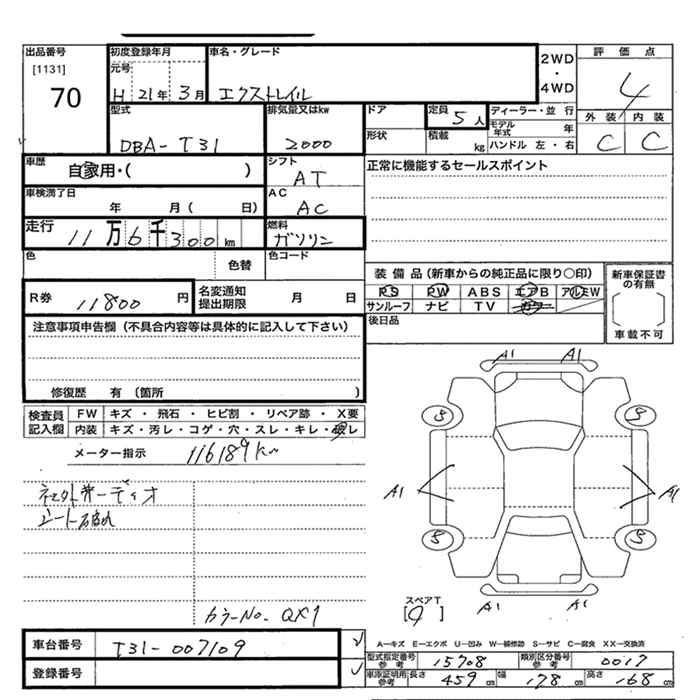 出品番号
[1131]
70
初度登録年月
元号
H 21年 3月
車名・グレード
エクストレイル
2WD
・
4WD
評価点
4
外装 内装
C C
型式
DBA-T31
排気量又はkw
2000
ドア
形状
定員
5人
積載
kg
ディーラー・並行
モデル年式 年
ハンドル 左・右
車歴
自家用・( )
シフト
AT
正常に機能するセールスポイント
車検満了日
年 月( 日)
AC
AC
走行
11万6千300km
燃料
ガソリン
色
色替
色コード
装備品(新車からの純正品に限り○印)
PS PW ABS エアB アルミW
サンルーフ ナビ TV カワ
新車保証書の有無
車載不可
R券
11800円
名変通知
提出期限
月 日
後日品
注意事項申告欄(不具合内容等は具体的に記入して下さい)
修復歴 有(箇所 )
検査員
記入欄
FW キズ・飛石・ヒビ割・リペア跡・X要
内装 キズ・汚レ・コゲ・穴・スレ・キレ・破レ
メーター指示
116189km
社外オーディオ
シート破れ
カラーNo. QX1
A1 A1
5 5
A1 A1
5 5
スペアT
[9]
A1 A1
車台番号
T31-007109
登録番号
A-キズ E-エクボ U-凹み W-補修跡 S-サビ C-腐食 XX-交換済
型式指定番号
参考
15708
類別区分番号
参考
0017
車庫証明用
参考
長さ 459cm 幅 178cm 高さ 168cm